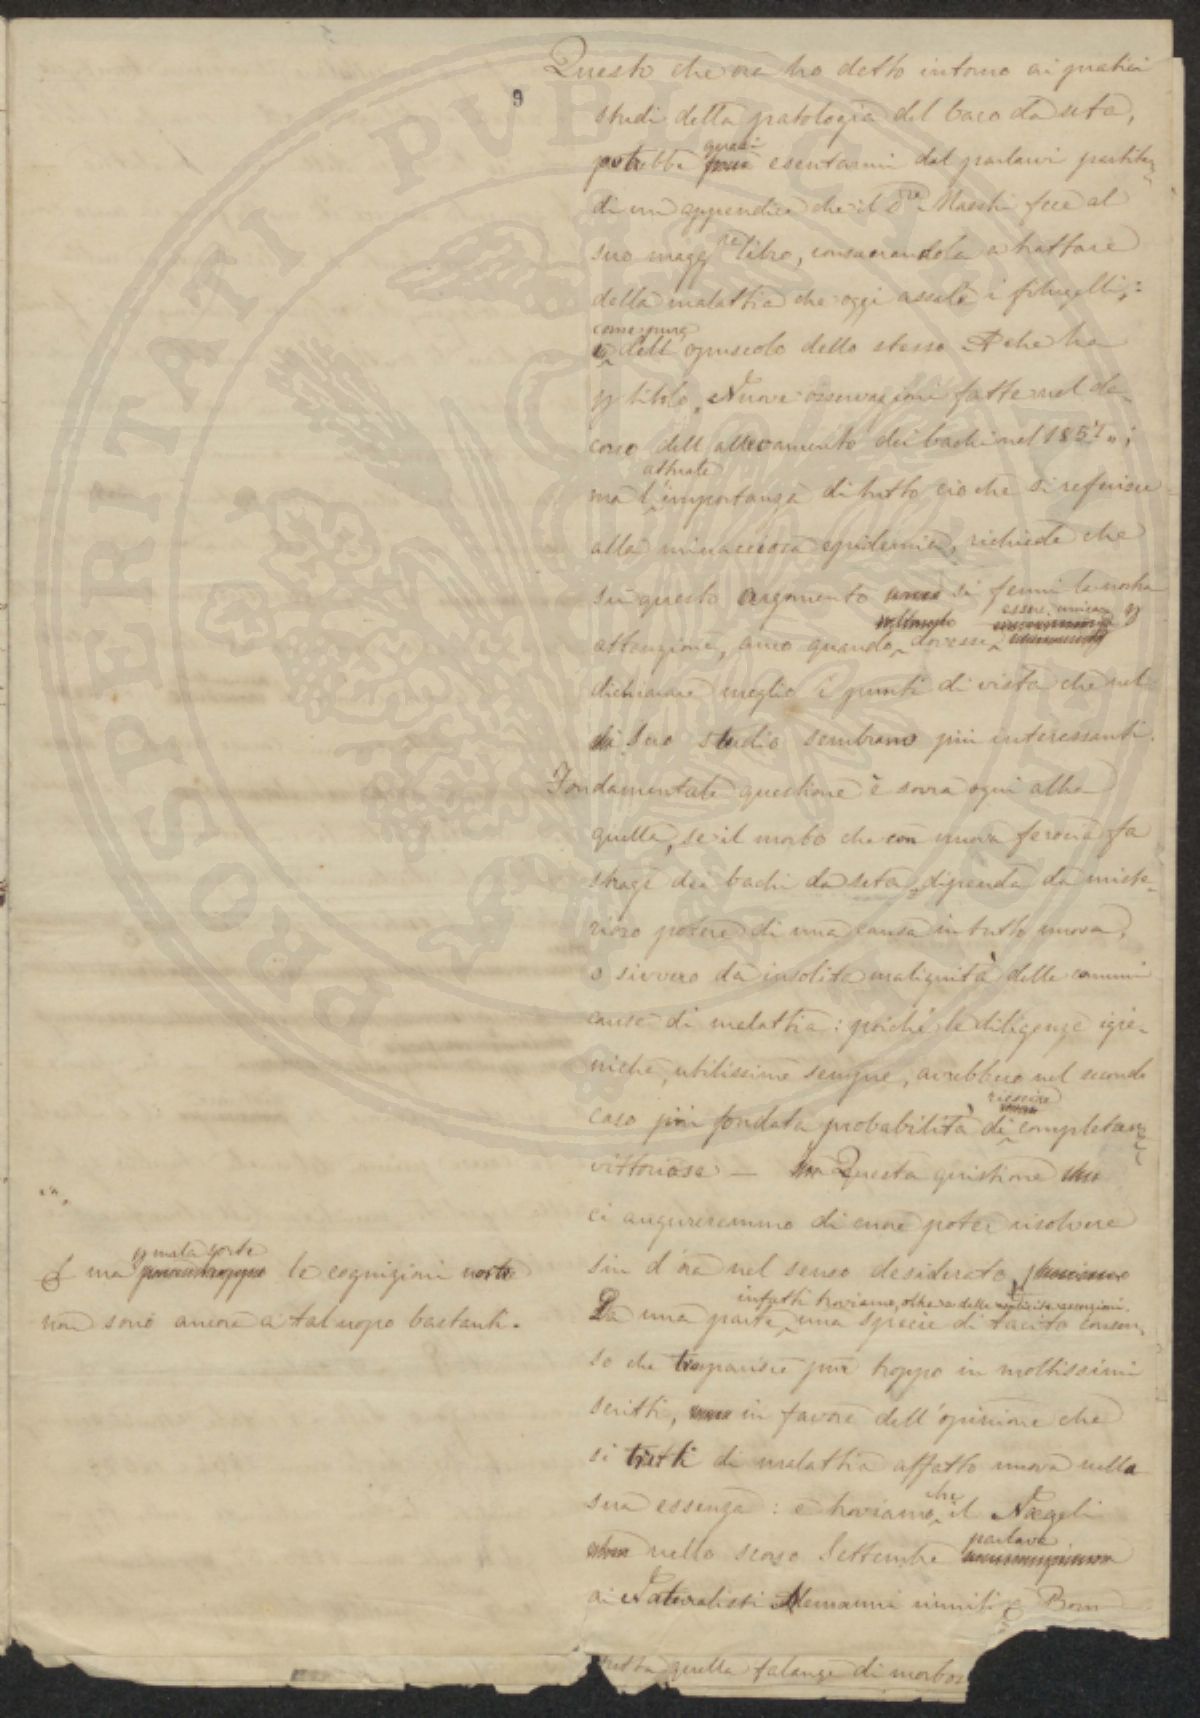 9
Questo che ora ho detto intorno ai pratici
studi della patologia del baco da seta,
quasi
potrebbe esentarmi dal parlarvi partitaz
di un'appendice che il Dre Maestri fece al
suo magg.re libro, consacrandola a trattare
della malattia che oggi assale i filugelli,
come pure
dell'opuscolo dello stesso A che ha
p titolo „Nuove osservazioni fatte nel de-
corso dell'allevamento dei bachi nel 1857„;
attuale
ma l'importanza di tutto ciò che si referisce
alla minacciosa epidemia, richiede che
su questo argomento si fermi la nostra
soltanto essere p
attenzione, anco quando dovesse
dichiarare meglio i punti di vista che nel
suo studio sembrano più interessanti.
Fondamentale questione è sovra ogni altra
quella, se il morbo che con nuova ferocia fa
strage dei bachi da seta, dipenda da miste-
rioso potere di una causa in tutto nuova,
o sivvero da insolita malignità delle comuni
cause di malattia: poichè le diligenze igie-
niche, utilissime sempre, avrebbero nel secondo
riescire
caso più fondata probabilità di completam
vittoriose — Questa quistione
ci augureremmo di cuore poter risolvere
sin d'ora nel senso desiderato,
p mala sorte
ma purtroppo le cognizioni nostre
non sono ancora a tal uopo bastanti.
infatti troviamo, oltre a delle asserzioni,
Da una parte una specie di tacito consen-
so che trasparisce pur troppo in moltissimi
scritti, in favore dell'opinione che
si tratti di malattia affatto nuova nella
sua essenza: e troviamo che il Nægeli
parlava
nello scorso Settembre
ai Naturalisti Alemanni riuniti a Bonn
tutta quella falange di morbos